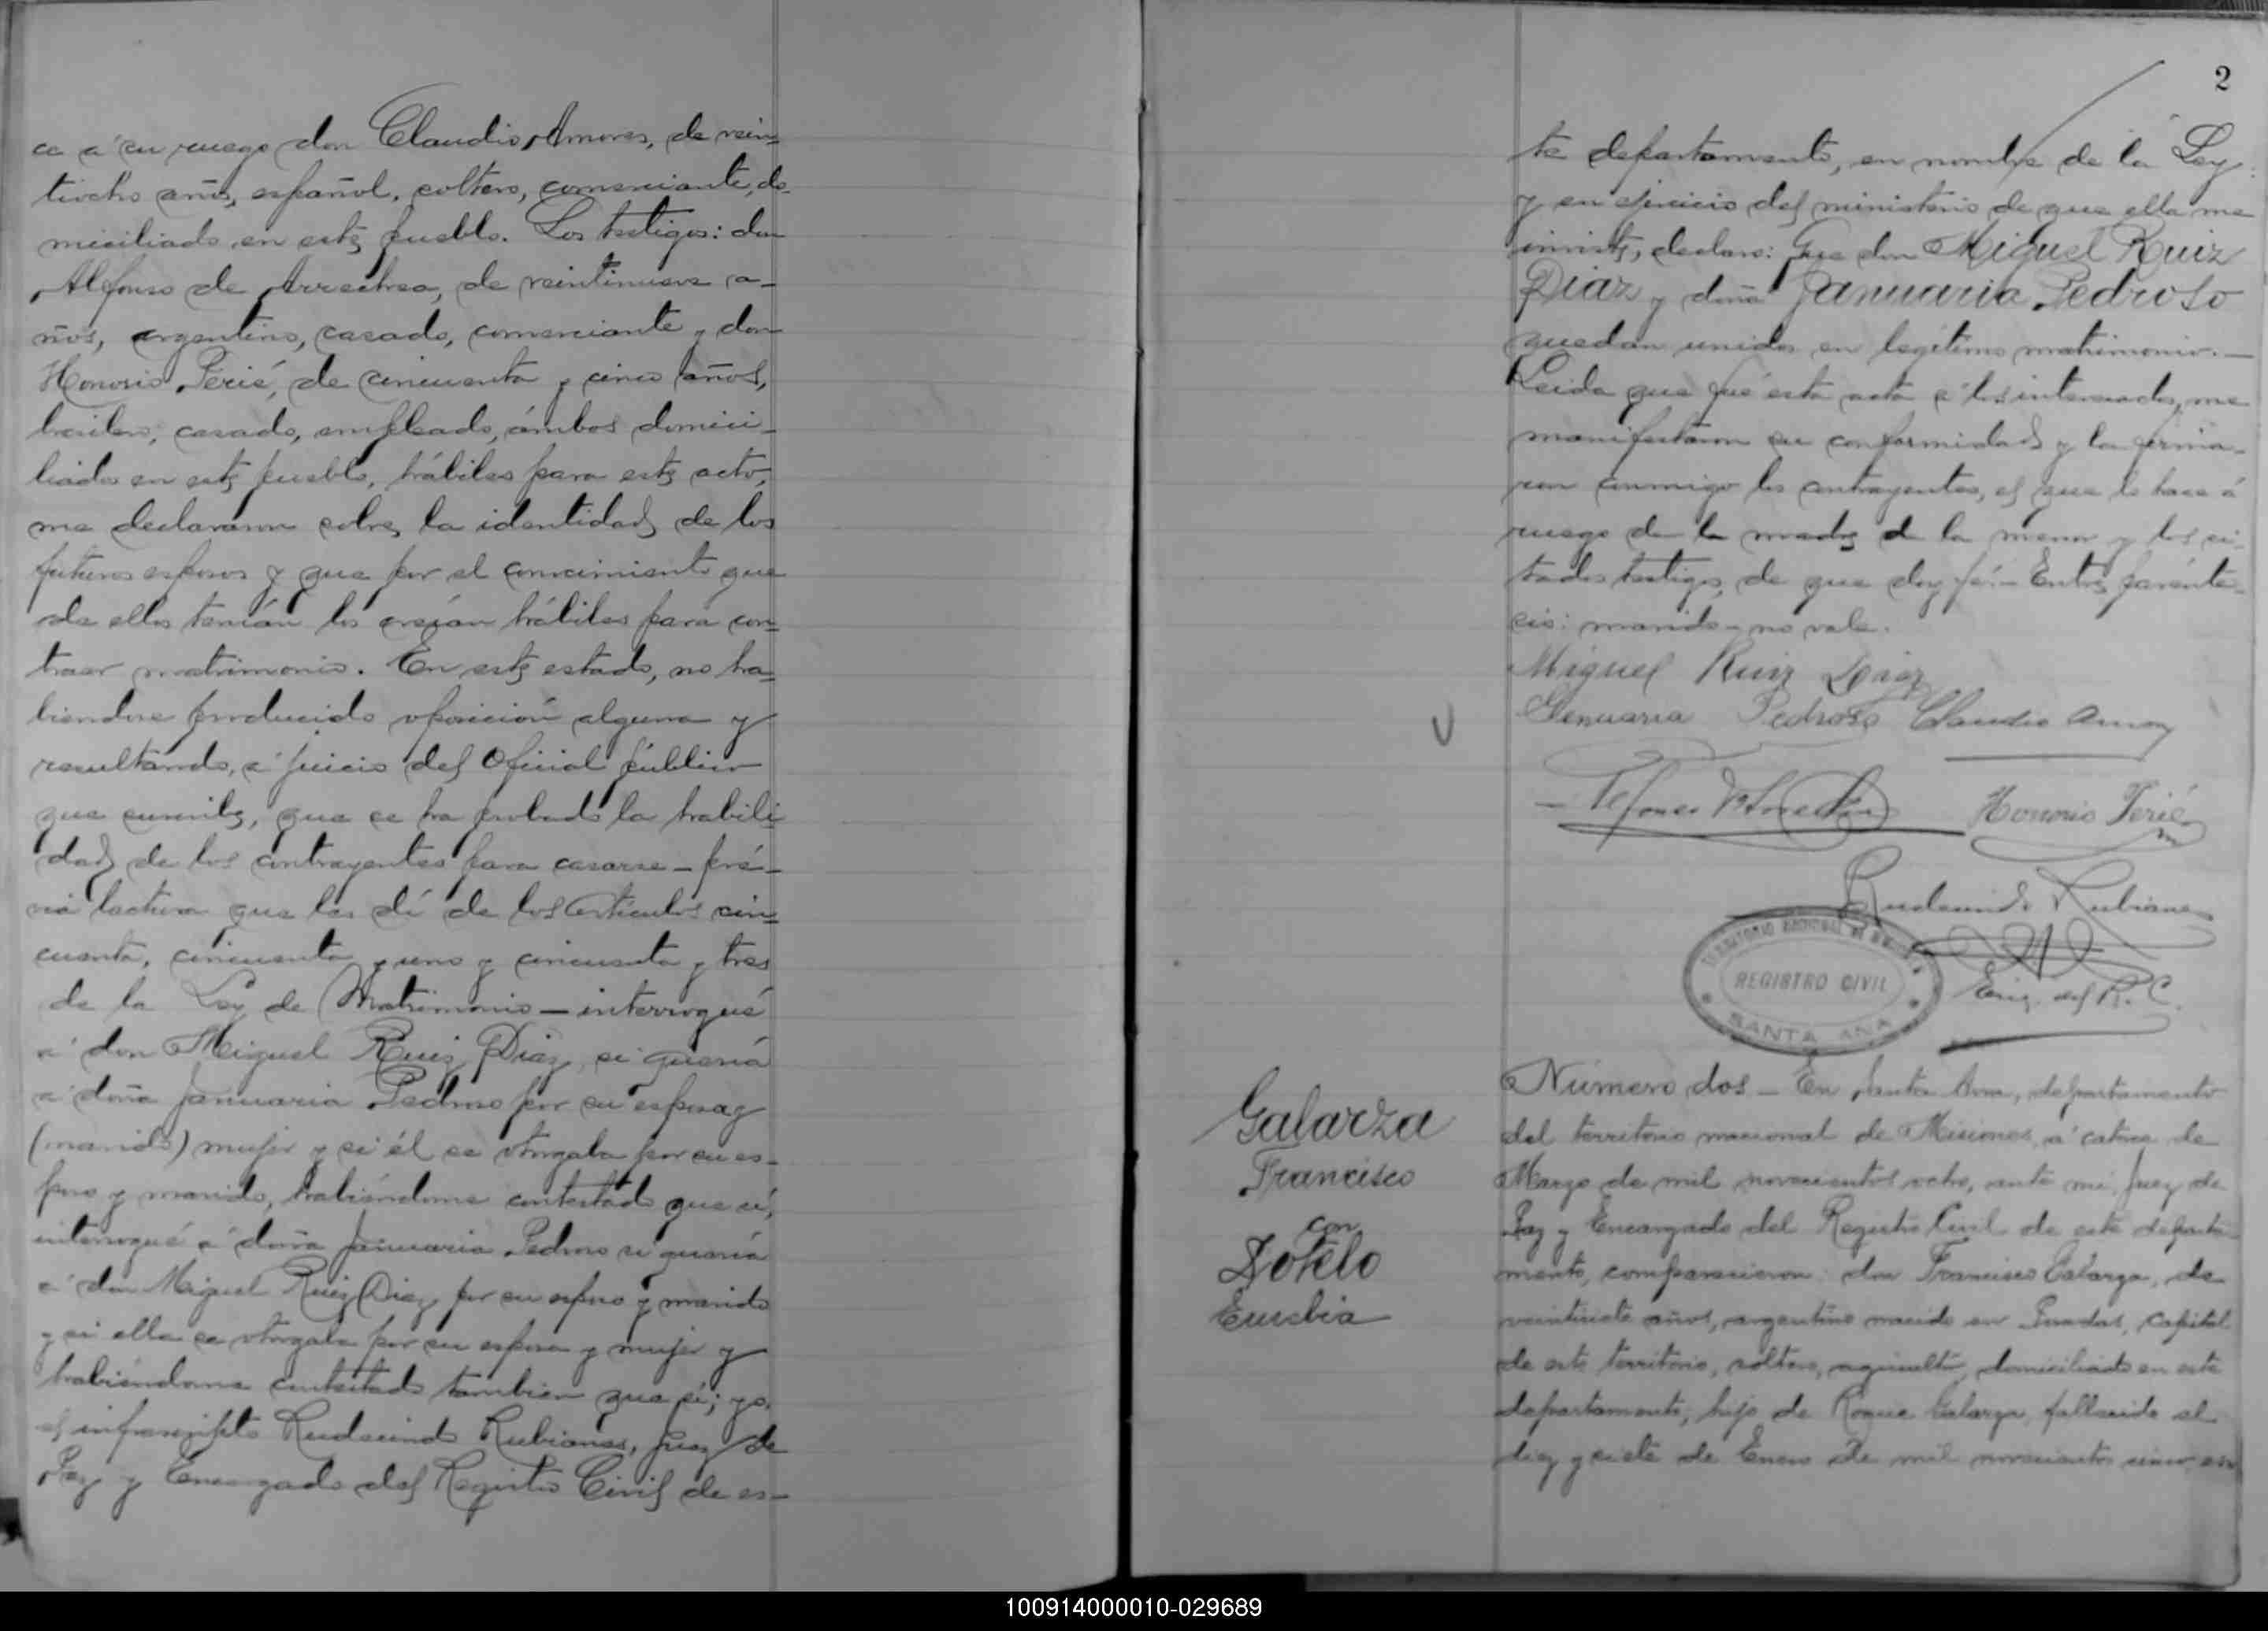 ce a' su ruego don Claudio Amores, de vein=
tiocho años, español, soltero, comerciante, do-
miciliado en este pueblo. Los testigos: don
Alfonso de Arrechea, de veintinueve a-
ños, argentino, casado, comerciante y don
Honorio Perié, de cincuenta y cinco años,
brasilero, casado, empleado, ámbos domici-
liados en este pueblo, hábiles para este acto,
me declararon sobre la identidad de los
futuros esposos y que por el conocimiento que
de ellos tenían los creían hábiles para con=
traer matrimonio. En este estado, no ha=
biendose producido oposición alguna y
resultando, a' juicio del Oficial público
que suscribe, que se ha probado la habili-
dad de los contrayentes para casarse - pré-
via lectura que les dí de los artículos cin=
cuenta, cincuenta y uno y cincuenta y tres
de la Ley de Matrimonio - interrogué
a' don Miguel Ruiz Diaz, si quería
a' doña Januaria Pedroso por su esposa y
(marido) mujer y si él se otorgaba por su es-
poso y marido, habiéndome contestado que sí,
interrogué a' doña Januaria Pedroso si quería
a' don Miguel Ruiz Diaz por su esposo y marido
y si ella se otorgaba por su esposa y mujer y
habiéndome contestado tambien que sí; yo,
el infrascripto Rudecindo Rubianes, Juez de
Paz y Encargado del Registro Civil de es-
2
te departamento, en nombre de la Ley
y en ejercicio del ministerio de que ella me
inviste, declaro: Que don Miguel Ruiz
Diaz y doña Januaria Pedroso
quedan unidos en legítimo matrimonio. -
Leida que fué esta acta a' los interesados, me
manifestaron su conformidad y la firma-
ron conmigo los contrayentes, el que lo hace á
ruego de la madre de la menor y los ci-
tados testigos, de que doy fé. - Entre parénte-
sis: marido - no vale.
Miguel Ruiz Diaz
Genuaria Pedroso Claudio Amor
Honorio Perié
Rudecindo Rubianes
Enc. del R. C.
REGISTRO CIVIL
SANTA ANA
Galarza
Francisco
con
Sotelo
Eusebia
Número dos - En Santa Ana, departamento
del territorio nacional de Misiones, a' catorce de
Marzo de mil novecientos ocho, ante mi, Juez de
Paz y Encargado del Registro Civil de este departa
mento, comparecieron: don Francisco Galarza, de
veintisiete años, argentino nacido en Posadas, capital
de este territorio, soltero, agricultor, domiciliado en este
departamento, hijo de Roque Galarza, fallecido el
diez y siete de Enero de mil novecientos cinco en